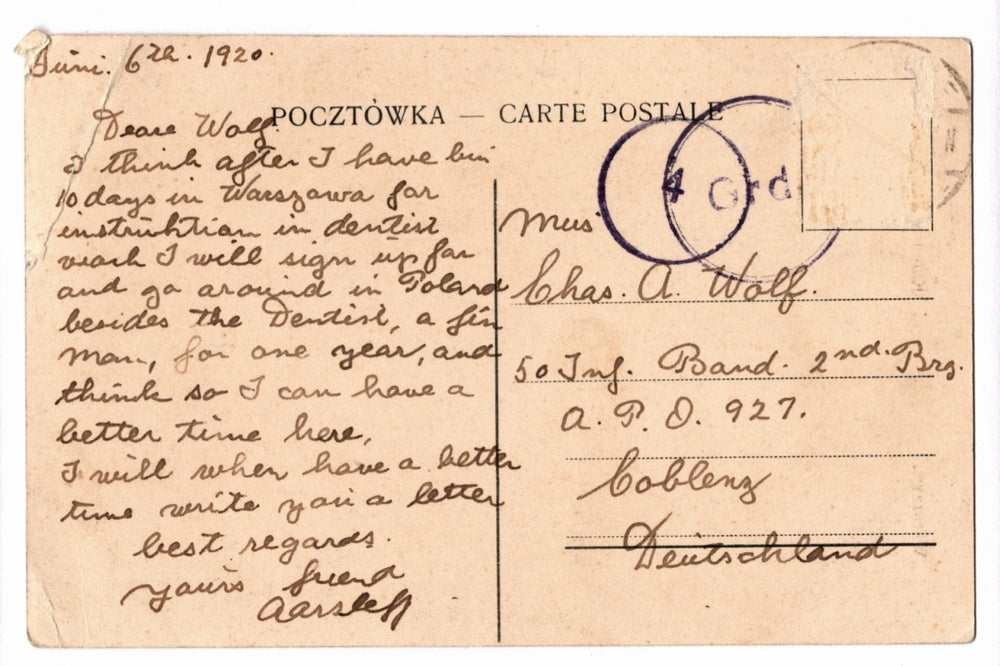 Juni. 6th. 1920.
POCZTÓWKA — CARTE POSTALE
Deare Wolf.
I think after I have bin
10 days in Warszawa for
instruhtion in dentist
work I will sign up for
and go around in Poland
besides the Dentist, a fin
man, for one year, and
think so I can have a
better time here.
I will when have a better
time write you a letter
best regards.
yours friend
Aarsleff
4 Grd
Mus
Chas. A. Wolf.
50 Inf. Band. 2nd. Brg.
A. P. O. 927.
Coblenz
Deutschland